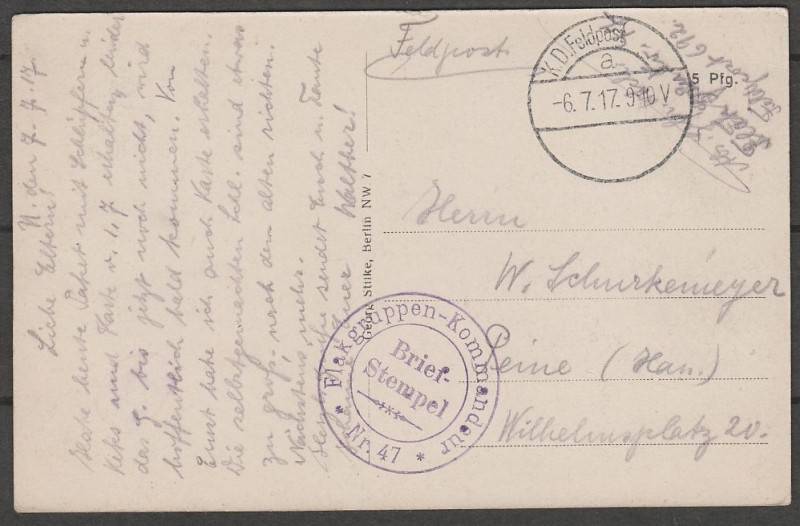 N. den 7. 7. 17.
Liebe Eltern!
Habe heute Paket mit Schlüpfern u.
Keks und Karte v. 1. 7 erhalten, leider
das G. bis jetzt noch nicht, wird
hoffentlich bald kommen. Von
Ernst habe ich auch Karte erhalten.
Die selbstgemachten Schl. sind etwas
zu groß, nach dem alten richten.
Nächstens mehr.
sendet Euch u. Tante
Walther!
Georg Stilke, Berlin NW. 7
Feldpost
K.D.Feldpost
a
-6.7.17. 9-10 V
5 Pfg.
Feldpost 692
Herrn
W. Schurkemeyer
Peine (Han.)
Wilhelmsplatz 20.
Flakgruppen-Kommandeur
Brief-
Stempel
* Nr. 47 *